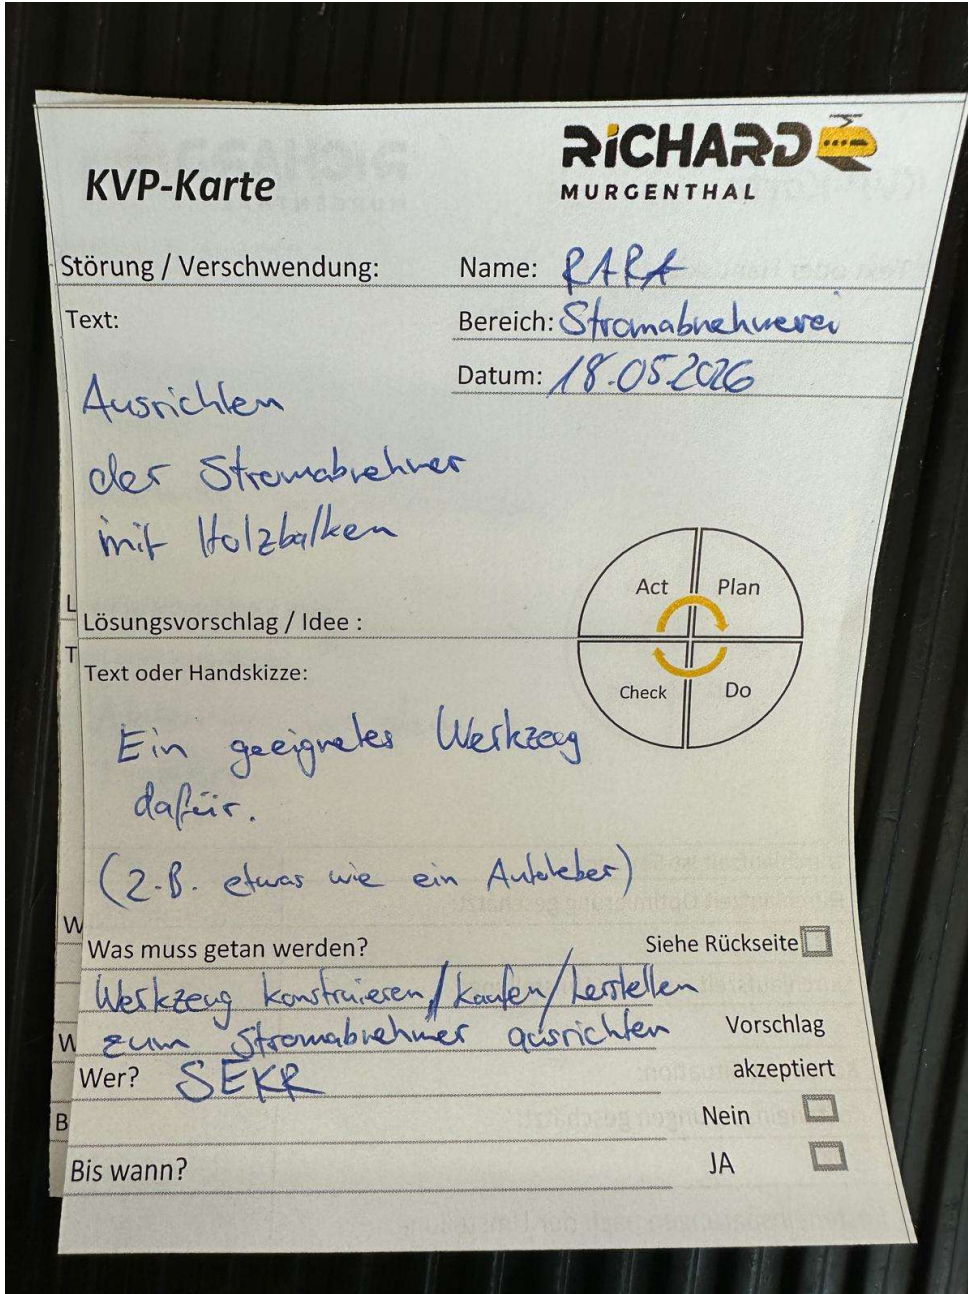 KVP-Karte
RiCHARD
MURGENTHAL
Störung / Verschwendung:
Name: RARA
Text:
Bereich: Stromabnehmerei
Datum: 18.05.2026
Ausrichten
der Stromabnehmer
mit Holzbalken
Act
Plan
Check
Do
L
Lösungsvorschlag / Idee :
T
Text oder Handskizze:
Ein geeignetes Werkzeug
dafür.
(z.B. etwas wie ein Autoheber)
W
Was muss getan werden?
Siehe Rückseite
Werkzeug konstruieren/kaufen/herstellen
zum Stromabnehmer ausrichten
Vorschlag
akzeptiert
W
Wer? SEKR
Nein
B
Bis wann?
JA